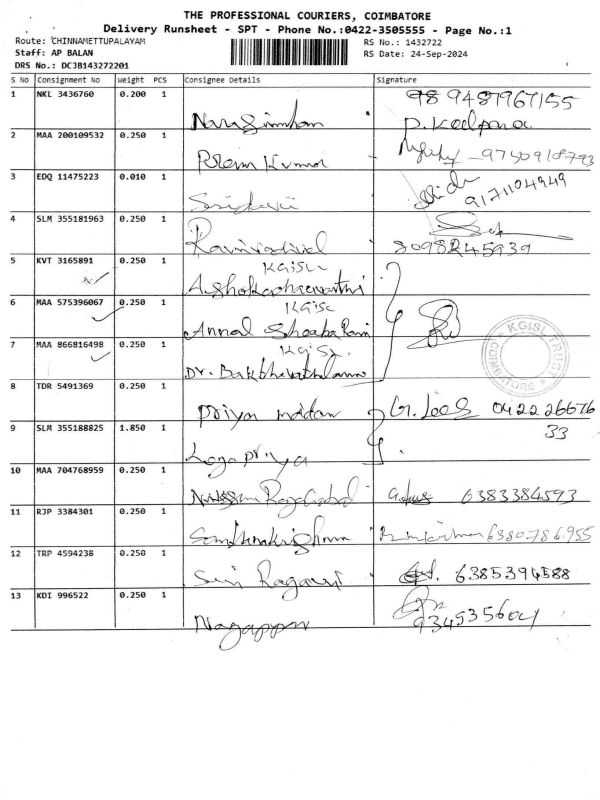 THE PROFESSIONAL COURIERS, COIMBATORE
Delivery Runsheet - SPT - Phone No.:0422-3505555 - Page No.:1
Route: CHINNAMETTUPALAYAM
RS No.: 1432722
Staff: AP BALAN
RS Date: 24-Sep-2024
DRS No.: DCJB143272201
S No Consignment No Weight PCS Consignee Details Signature
1 NKL 3436760 0.200 1 Narasimham 98 9487967155
P. Kalpana
2 MAA 200109532 0.250 1 Prem Kumar 9750910793
3 EDQ 11475223 0.010 1 Sridevi 9171104949
4 SLM 355181963 0.250 1 8098245939
5 KVT 3165891 0.250 1 KGISL
6 MAA 575396067 0.250 1 KGISL
Annal
7 MAA 866816498 0.250 1 KGISL
Dr.
KGISL TRUST COIMBATORE
8 TDR 5491369 0.250 1 Priya 0422 26676
33
9 SLM 355188825 1.850 1 Logapriya
10 MAA 704768959 0.250 1 6383384593
11 RJP 3384301 0.250 1 6380786955
12 TRP 4594238 0.250 1 6385394588
13 KDI 996522 0.250 1 Nagappan 934535604